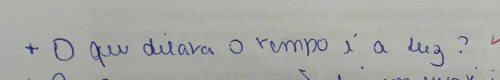 + O que dilata o tempo é a luz?